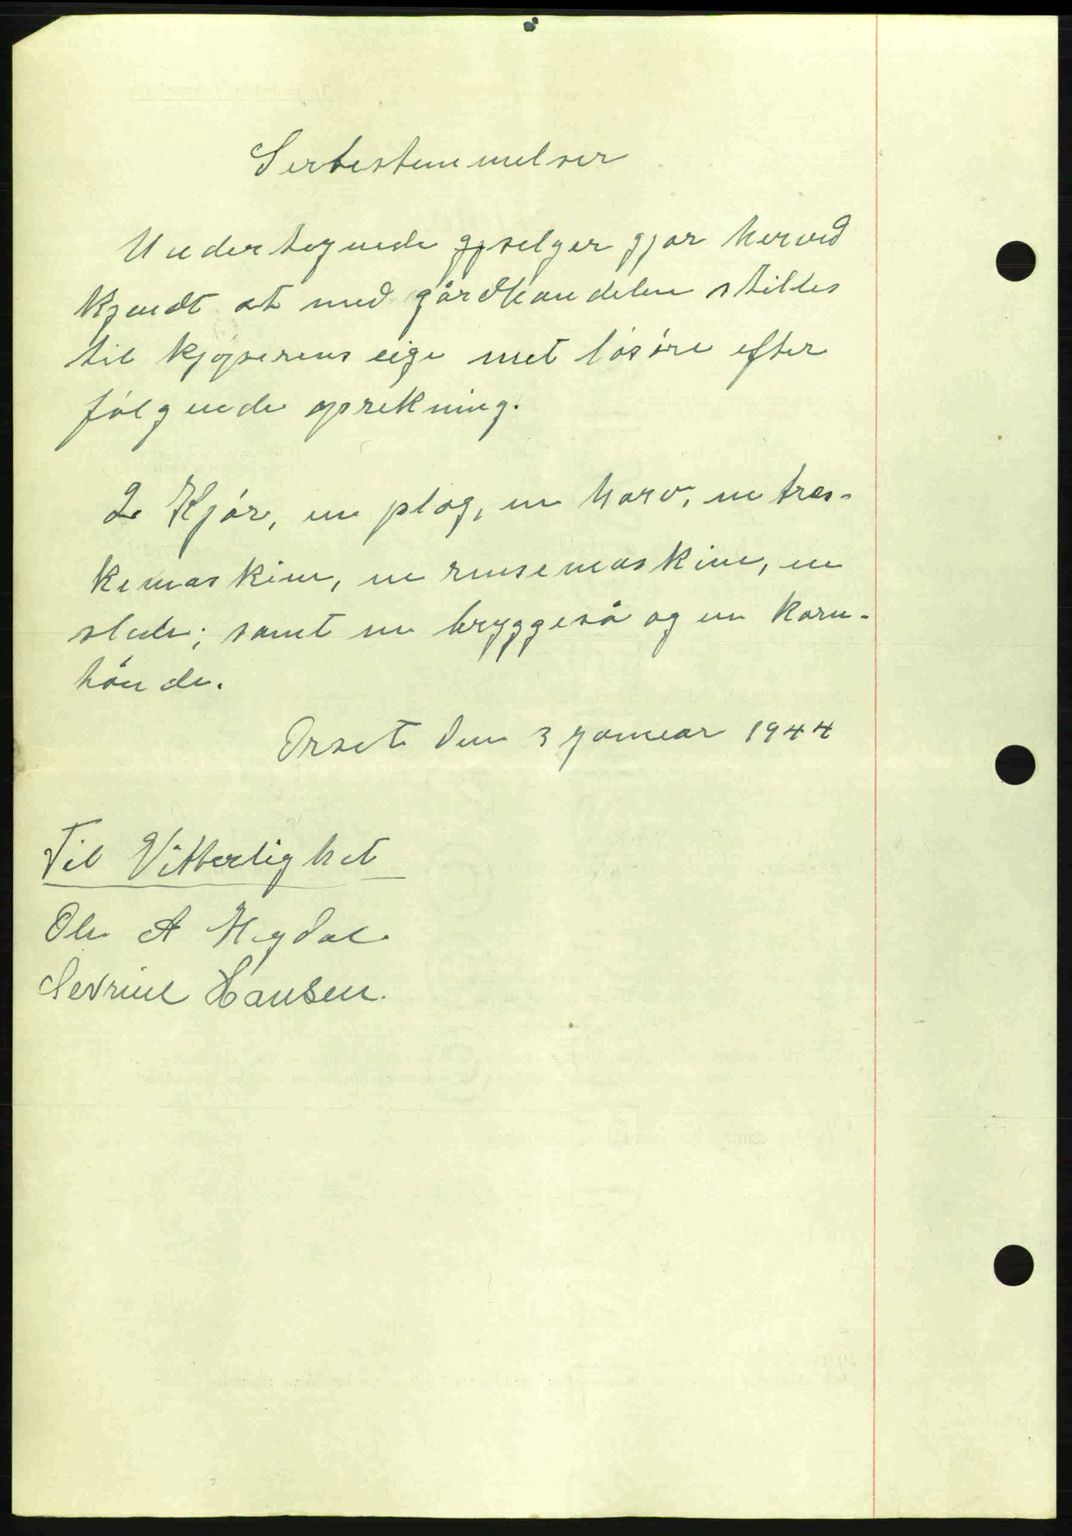 Serbestemmelser
Undertegnede selger gjør herved
kjendt at med gårdhandelen stilles
til kjøperens eige met lösöre efter
følgende oprekning.
2 Kjør, en plog, en harv, en tres-
kemaskine, en rensemaskine, en
slede; samt en bryggeså og en korn-
hönde.
Orset den 3 januar 1944
Til Vitterlighet
Ole A Hegdal
Sevrine Hansen.